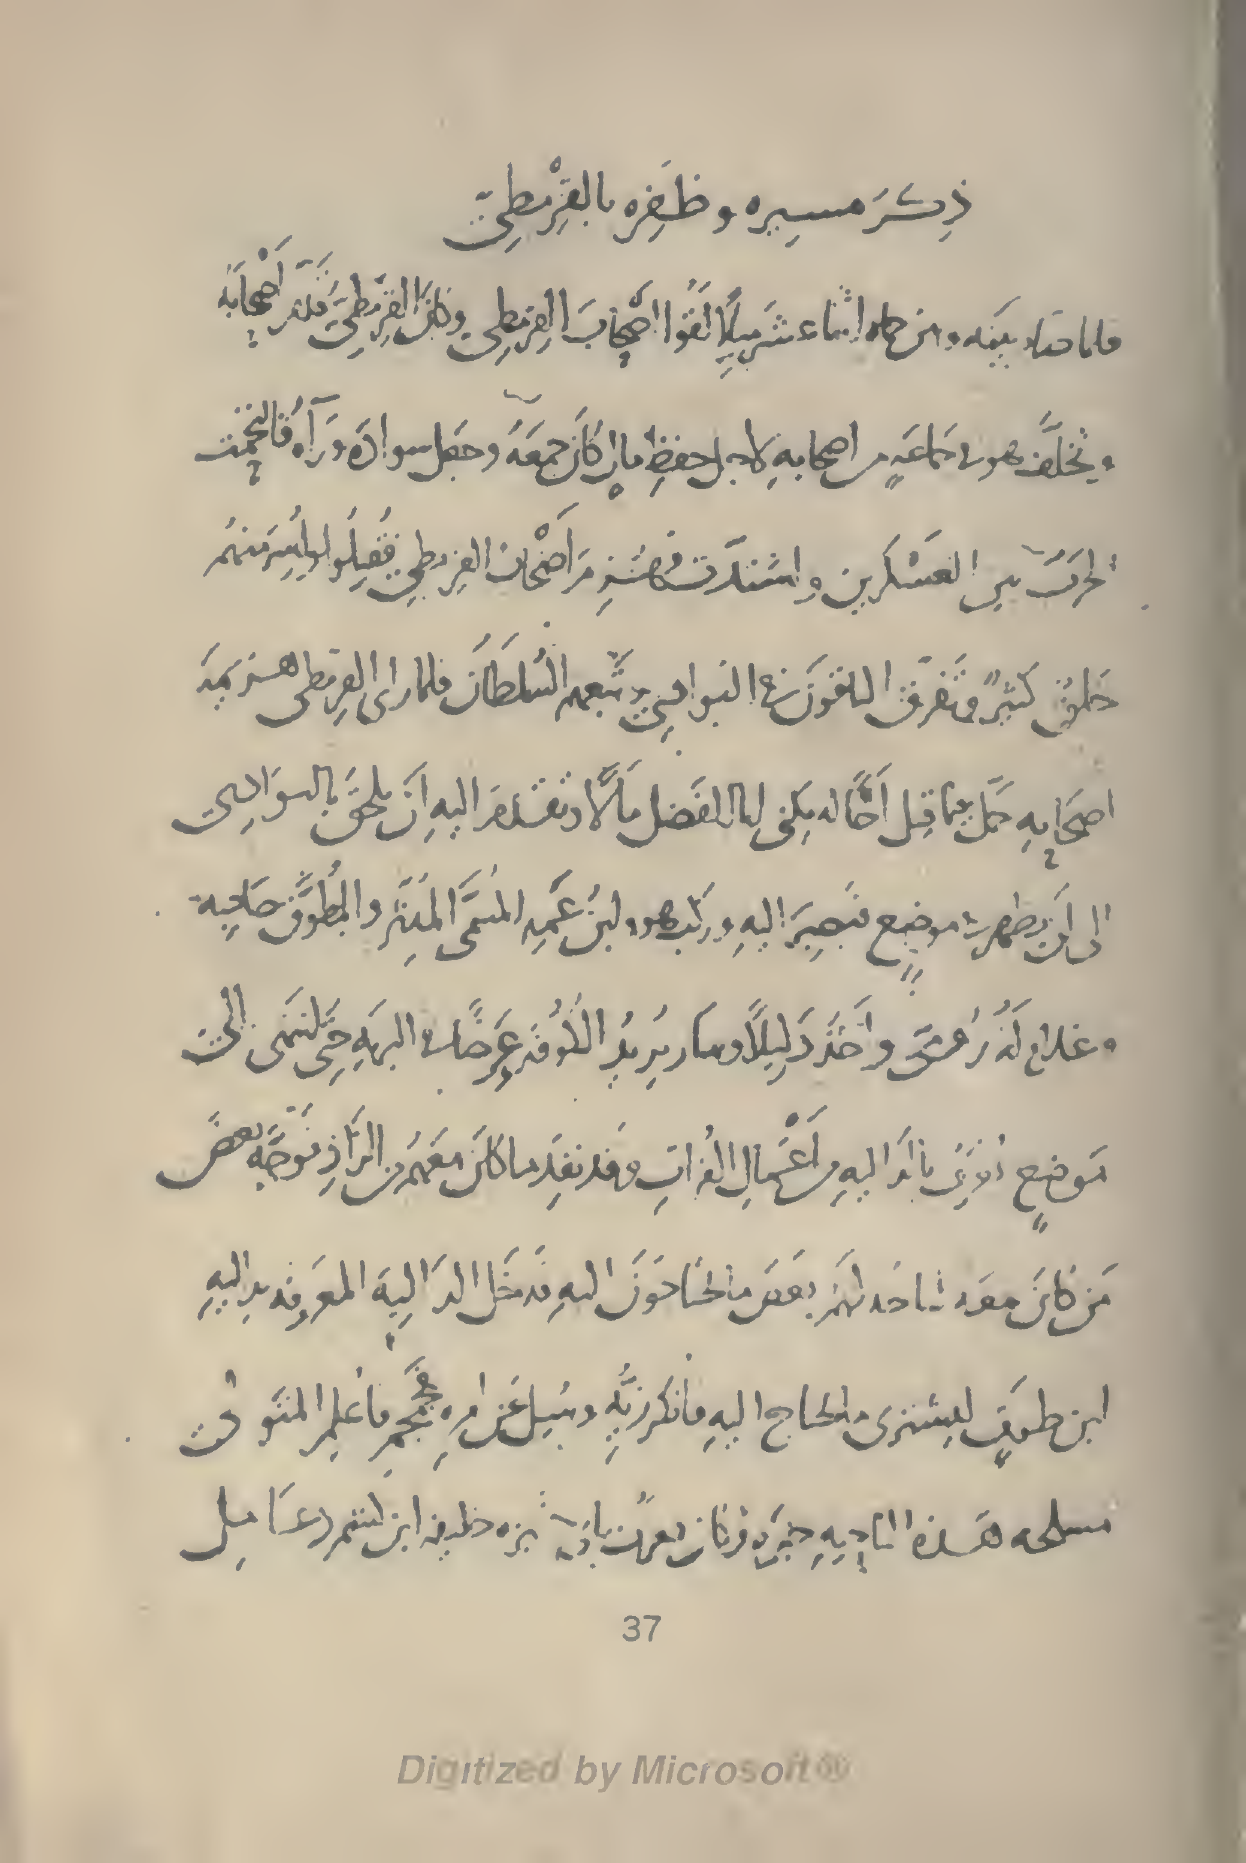 ذِكرَ مسيره وظَفِره بالقِرْمِطِيّ
فلما صار بينه وبين حماه اثنا عشر ميلًا لَقُوا اصحابَ القِرمِطِي وكانَ القرمطيّ قدّم أصْحَابَهُ
وتخلَّف هو في جماعَةٍ من اصحابهِ لاجل حفظِ مالٍ كانَ جمعَهُ وجعل سوادَه وَرَآه فالتحمت
الحَربُ بين العَسْكَرين واشتدّت فهُزِمَ أصْحَابُ القرمطي فقُتِلُوا وأُسِرَ منهُم
خلقٌ كثيرٌ وتَفَرقَ الباقونَ في البوادِي وتَبعهم السُلطَانُ فلما راى القرمطى هزيمة
اصحَابِهِ حمّل فيما قيل أخًا له يكنى ابا الفَضل مَالًا وتقدّمَ اليهِ أن يلحقَ بالبَوَادِى
الى ان يظهر في موضِعٍ فيصِيرَ اليهِ ورَكبَ هو وابنُ عَمِهِ المُسَمَّى المُدَثِّر والمُطَوَّق صَاحِبه
وغلام لَهُ رُومىّ وأخَذَ دَلِيلًا وسار يريدُ الكُوفَه عَرضًا في البريّهِ حتى انتهى الى
مَوضِعٍ يُعرَفُ بالداليهِ من أعْمالِ الفُراتِ وقد نفِدَ ما كانَ معَهُم من الزّاد فوَجَّهَ بعضَ
مَن كانَ معه لياخذ لَهُم بعَضَ ما يحتاجُونَ اليهِ فدخَل الدَالِيةَ المعروفه بداليهِ
ابن طوقٍ ليشترى ما يحتاج اليهِ فأنكر زِيُّهِ وسُيل عَن امرِهِ فمجمج فأعلِم المتولى
مسلحه هَذه الناحِيهِ خبَره وكان يعرف بابى خبزه خليفه ابن كشمرد عَامِل
37
Digitized by Microsoft®